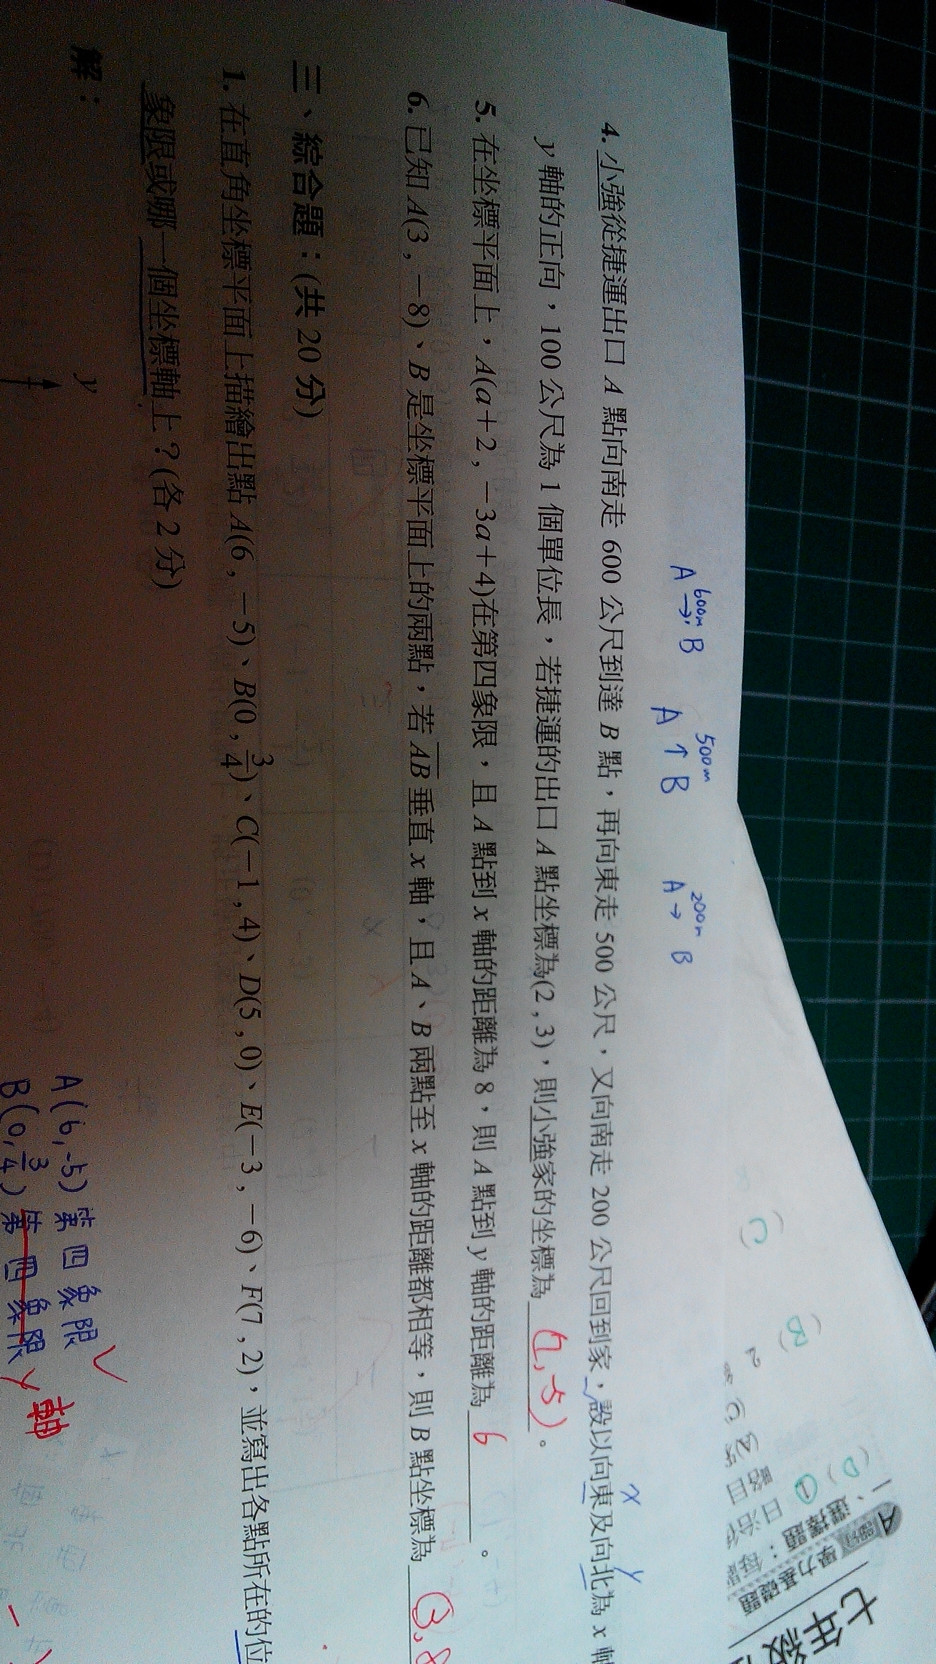 七年級
學力基礎題
一、選擇題：
A 600m → B
A 500m ↑ B
A 200m → B
4. 小強從捷運出口 A 點向南走 600 公尺到達 B 點，再向東走 500 公尺，又向南走 200 公尺回到家，設以向東及向北為 x 軸
x y
y 軸的正向，100 公尺為 1 個單位長，若捷運的出口 A 點坐標為(2 , 3)，則小強家的坐標為 (7,-5)。
5. 在坐標平面上，A(a＋2 , －3a＋4)在第四象限，且 A 點到 x 軸的距離為 8，則 A 點到 y 軸的距離為 6 。
6. 已知 A(3 , －8)、B 是坐標平面上的兩點，若 AB 垂直 x 軸，且 A、B 兩點至 x 軸的距離都相等，則 B 點坐標為 (3,8
三、綜合題：(共 20 分)
1. 在直角坐標平面上描繪出點 A(6 , －5)、B(0 , 3/4)、C(－1 , 4)、D(5 , 0)、E(－3 , －6)、F(7 , 2)，並寫出各點所在的位
象限或哪一個坐標軸上？(各 2 分)
解：
y
A(6,-5) 第四象限
B(0,3/4) 第四象限 y軸